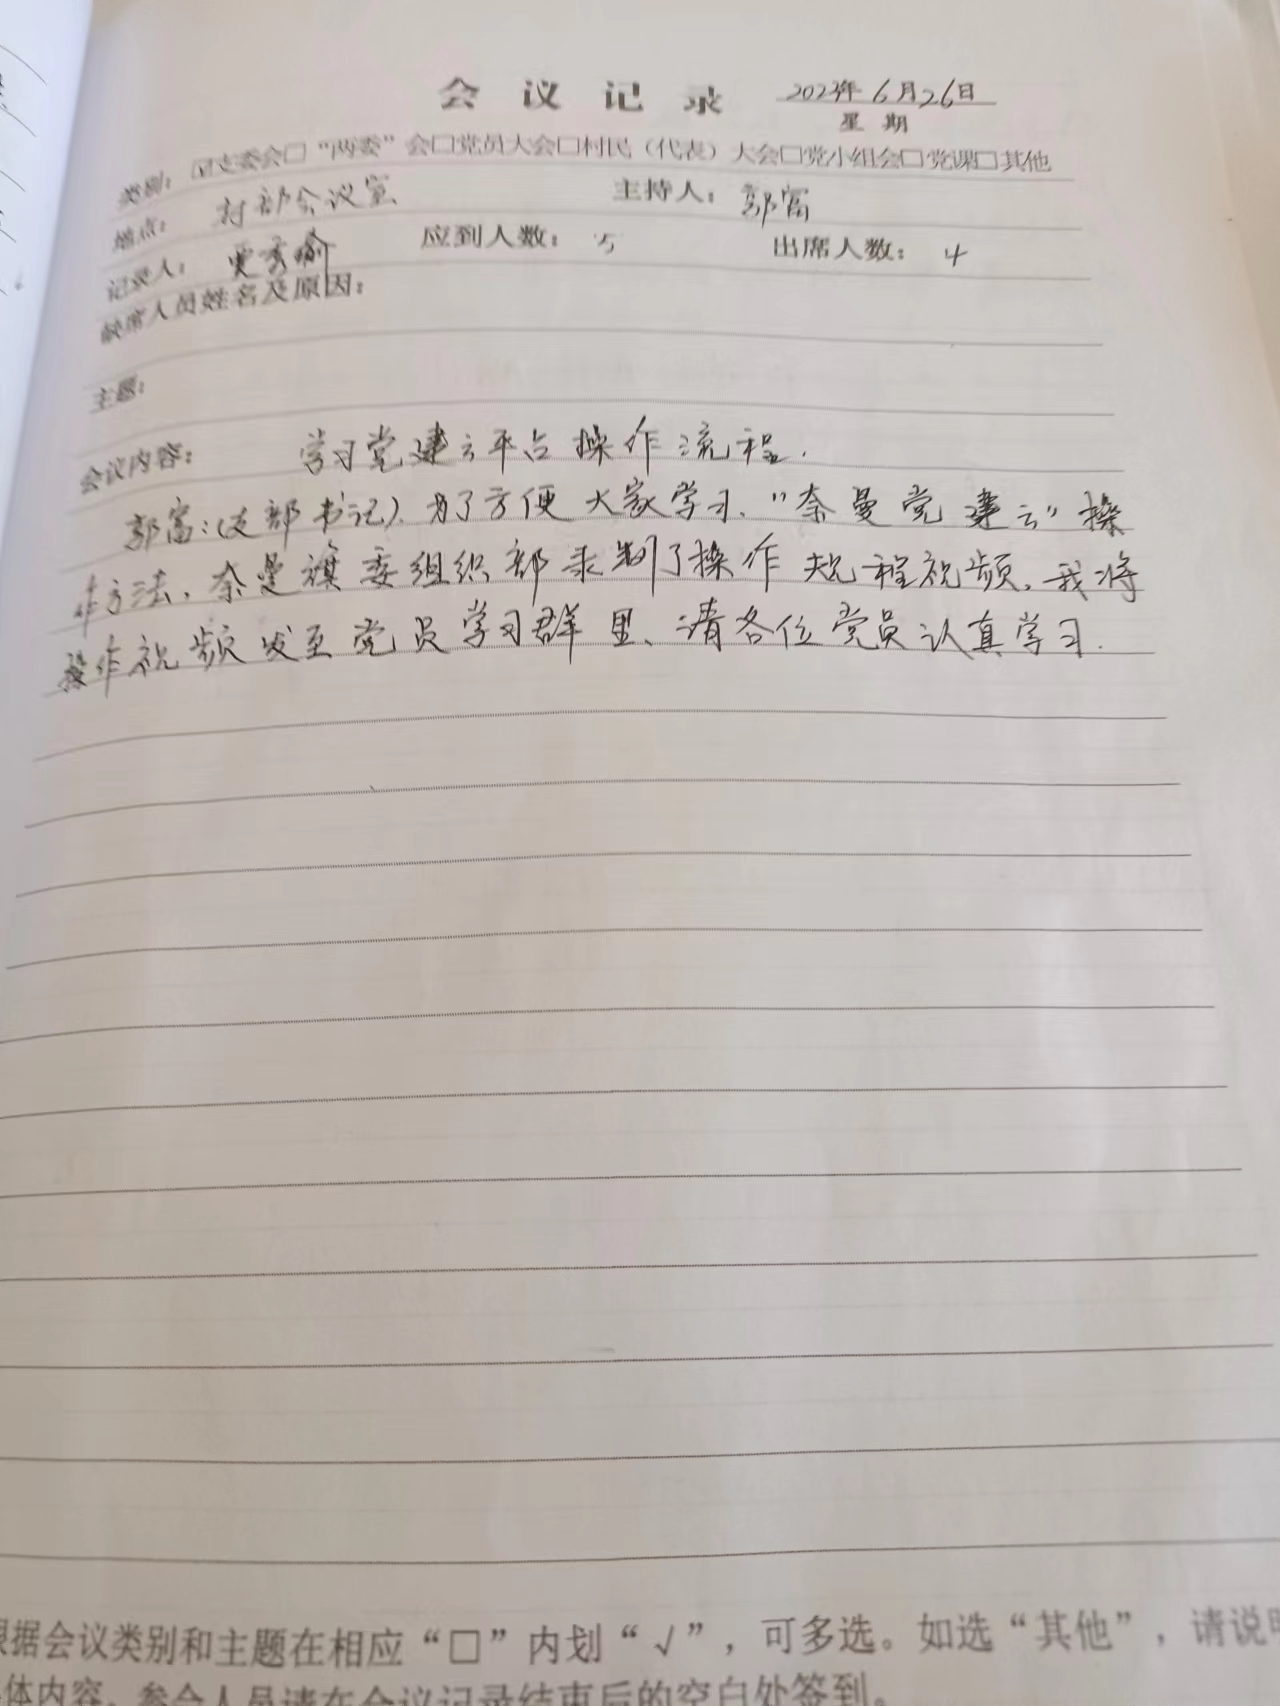 会议记录 2023年6月26日
星期
类别：☑支委会□“两委”会□党员大会□村民（代表）大会□党小组会□党课□其他
地点：村部会议室 主持人：郭富
记录人： 应到人数：5 出席人数：4
缺席人员姓名及原因：
主题：
会议内容： 学习党建云平台操作流程.
郭富:(支部书记).为了方便大家学习.“奈曼党建云”操
作方法,奈曼旗委组织部录制了操作规程视频,我将
操作视频发至党员学习群里、请各位党员认真学习.
根据会议类别和主题在相应“□”内划“√”，可多选。如选“其他”，请说明
体内容。参会人员请在会议记录结束后的空白处签到。